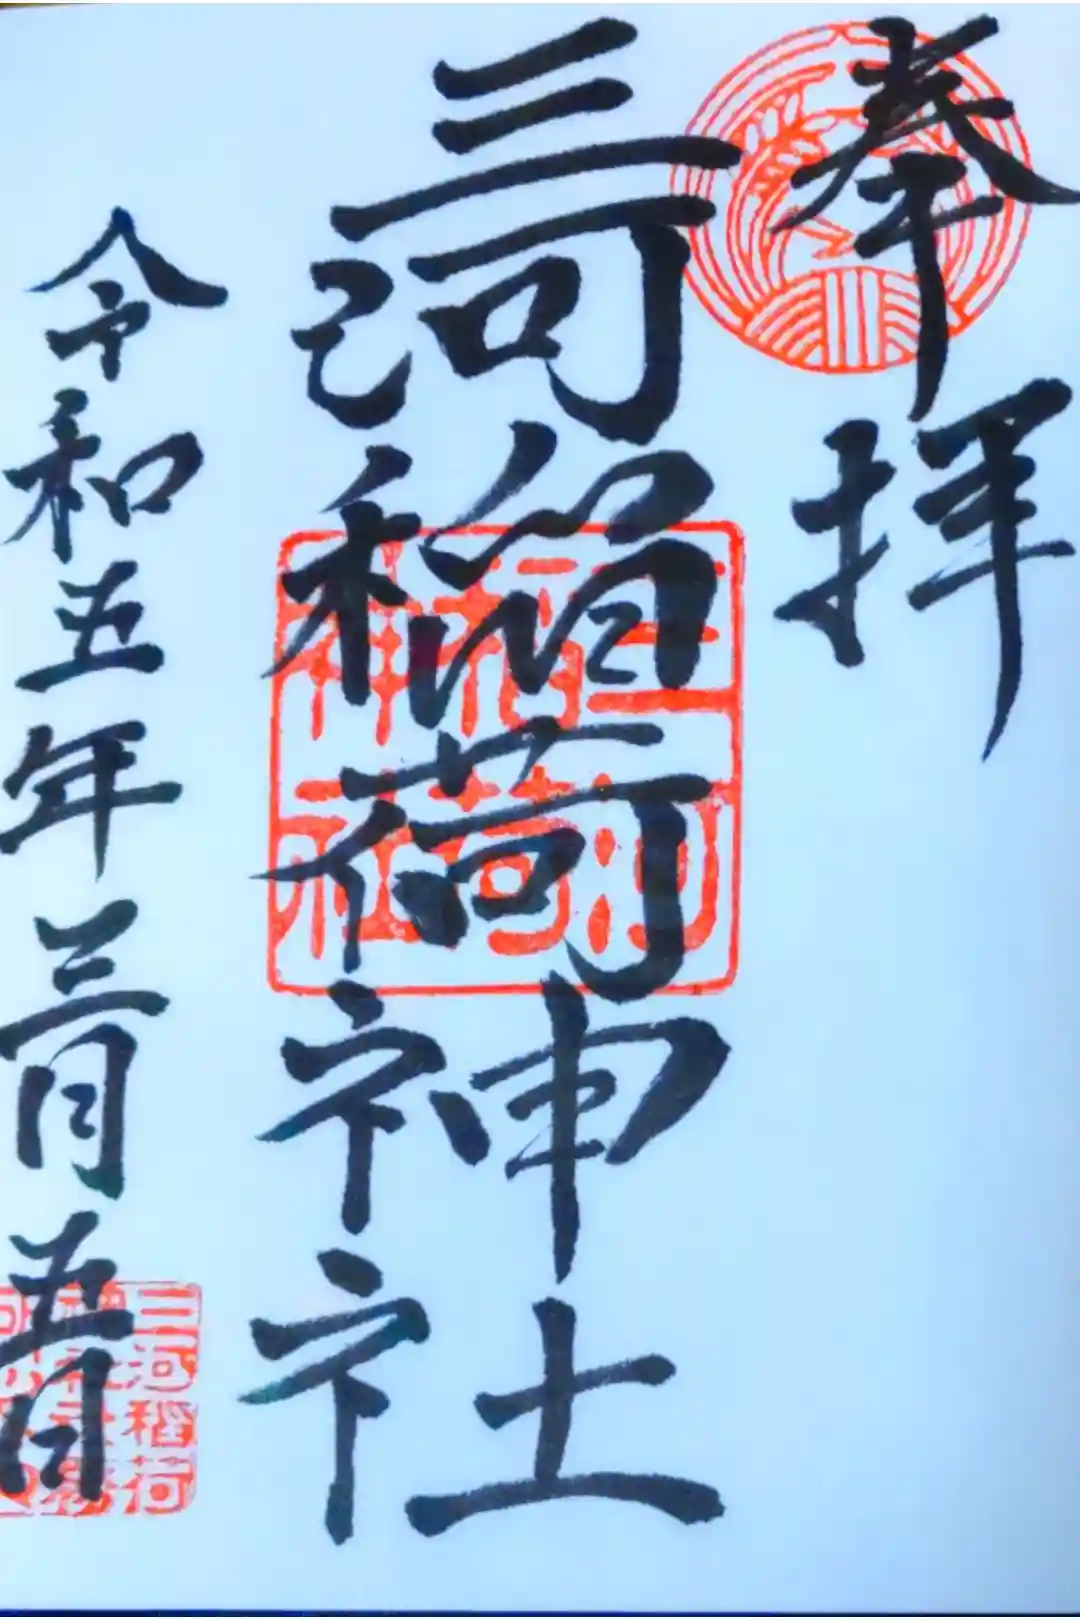 奉拝
三河稲荷神社
令和五年三月五日
三河
稲荷
神社
三河稲荷
神社